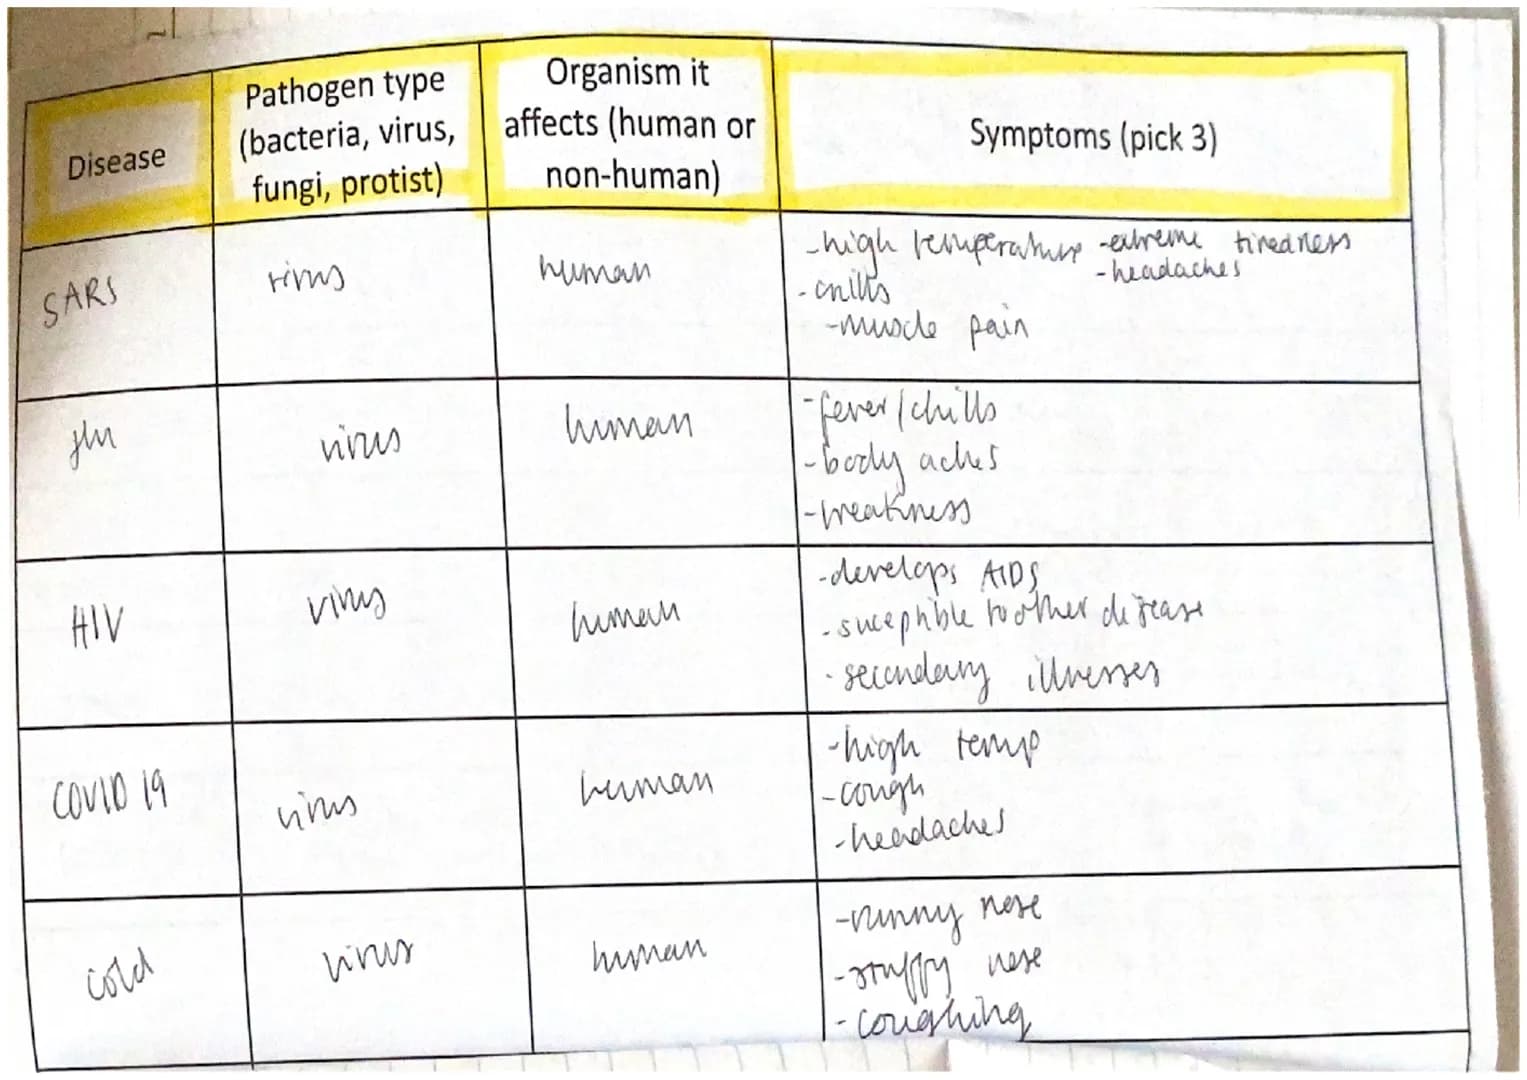 Disease
Pathogen type
(bacteria, virus,
fungi, protist)
Organism it
affects (human or
non-human)
Symptoms (pick 3)
SARS
virus
human
-high temperature -extreme tiredness
-headaches
-chills
-muscle pain
flu
virus
human
-fever/chills
-body aches
-weakness
HIV
virus
human
-develops AIDS
-suceptible to other disease
-secondary illnesses
COVID 19
virus
human
-high temp
-cough
-headaches
cold
virus
human
-runny nose
-stuffy nose
-coughing